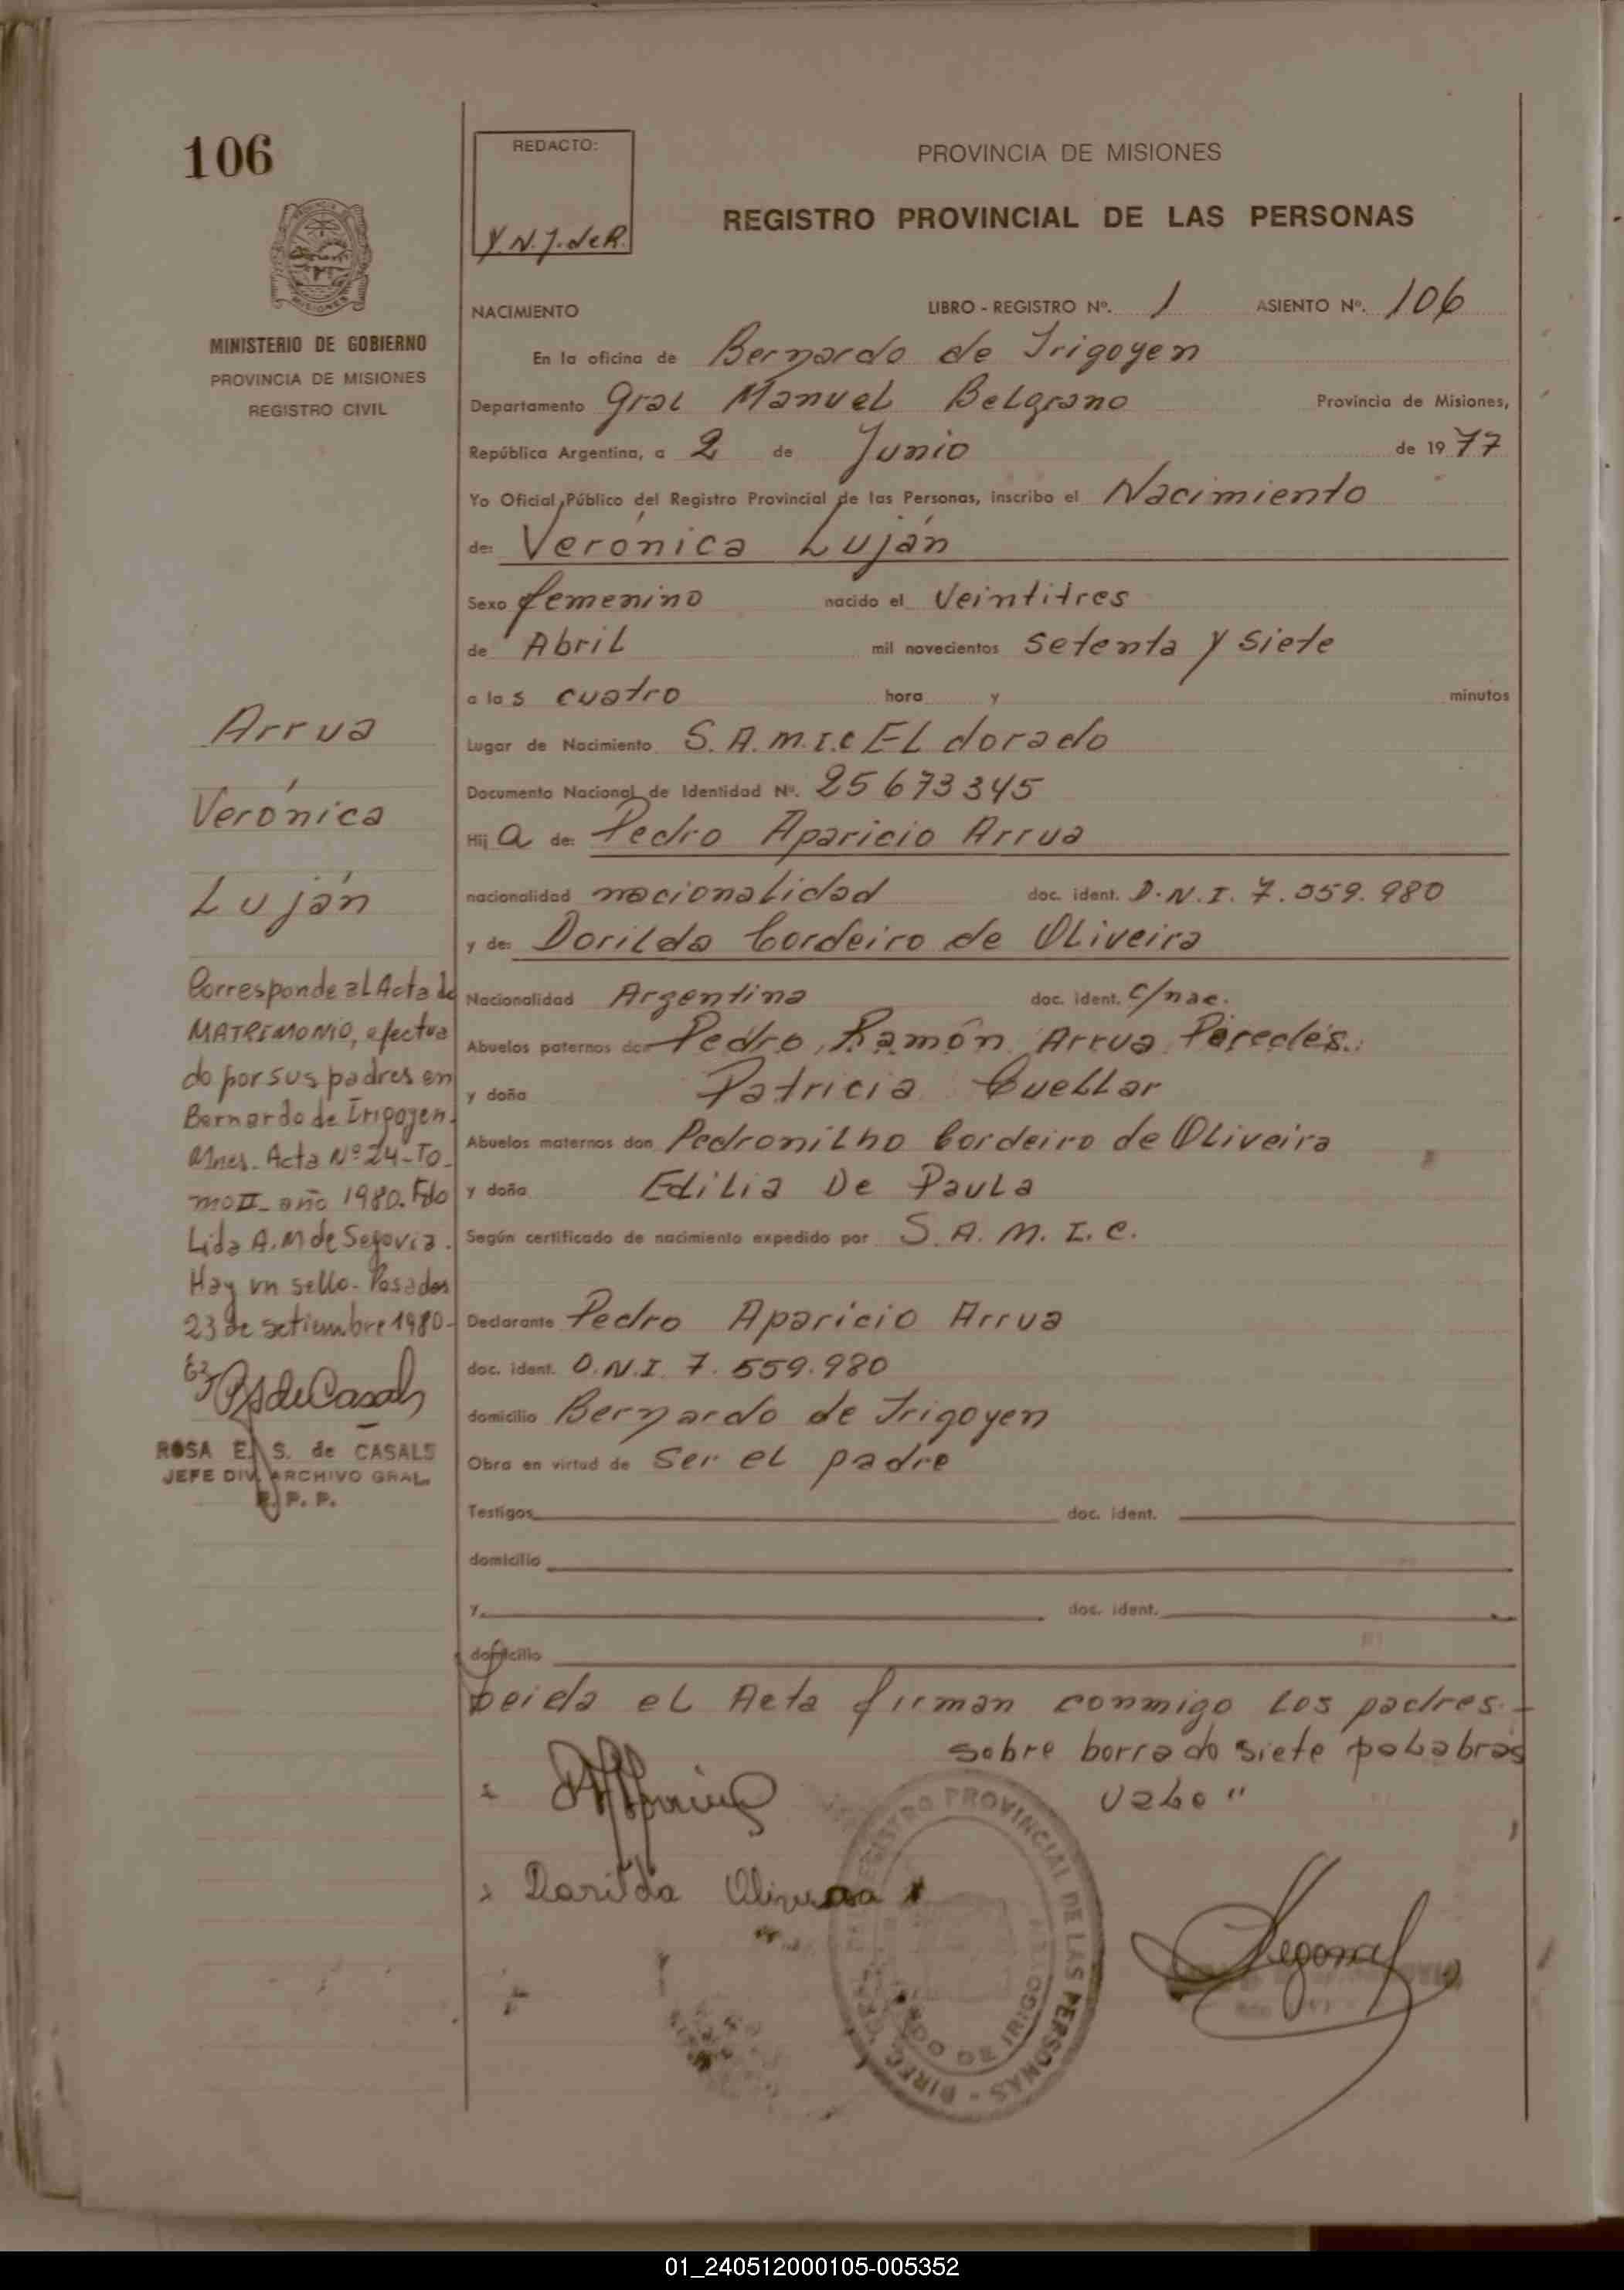 106
MINISTERIO DE GOBIERNO
PROVINCIA DE MISIONES
REGISTRO CIVIL
REDACTO:
Y.N.J. de R.
PROVINCIA DE MISIONES
REGISTRO PROVINCIAL DE LAS PERSONAS
NACIMIENTO LIBRO - REGISTRO Nº. 1 ASIENTO Nº. 106
En la oficina de Bernardo de Irigoyen
Departamento Gral Manuel Belgrano Provincia de Misiones,
República Argentina, a 2 de Junio de 1977
Yo Oficial Público del Registro Provincial de las Personas, inscribo el Nacimiento
de: Verónica Luján
Sexo femenino nacido el Veintitres
de Abril mil novecientos setenta y siete
a las cuatro hora y minutos
Lugar de Nacimiento S.A.M.I.C ELdorado
Documento Nacional de Identidad Nº. 25673345
Hija de: Pedro Aparicio Arrua
nacionalidad nacionalidad doc. ident. D.N.I. 7.559.980
y de: Dorilda Cordeiro de Oliveira
Nacionalidad Argentina doc. ident. c/nac.
Abuelos paternos don Pedro Ramón Arrua Paredes.
y doña Patricia Cuellar
Abuelos maternos don Pedronilho Cordeiro de Oliveira
y doña Edilia De Paula
Según certificado de nacimiento expedido por S.A.M.I.C.
Declarante Pedro Aparicio Arrua
doc. ident. D.N.I. 7.559.980
domicilio Bernardo de Irigoyen
Obra en virtud de ser el padre
Testigos doc. ident.
domicilio
y doc. ident.
domicilio
Leida el Acta firman conmigo los padres.-
sobre borrado siete palabras
vale "
Dorilda Oliveira
REGISTRO PROVINCIAL DE LAS PERSONAS
Arrua
Verónica
Luján
Corresponde al Acta de
MATRIMONIO, efectua
do por sus padres en
Bernardo de Irigoyen.
Mnes. Acta Nº 24-To-
mo II- año 1980. Fdo
Lida A.M de Segovia.
Hay un sello- Posadas
23 de setiembre 1980-
ROSA E. S. de CASALS
JEFE DIV. ARCHIVO GRAL.
R. P. P.
01_240512000105-005352